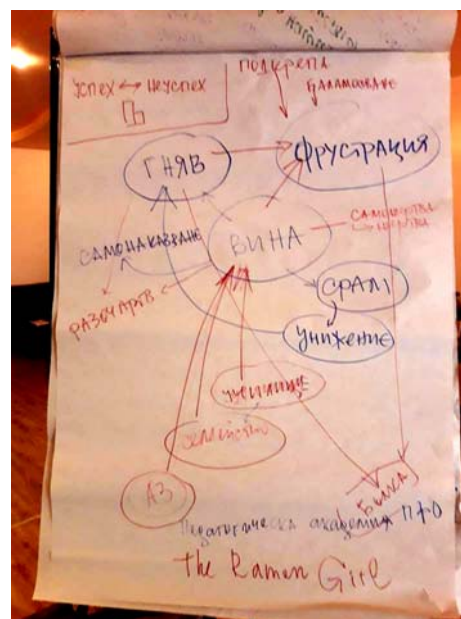 УСПЕХ ↔ НЕУСПЕХ
ПОДКРЕПА
БАЛАНСИРАНЕ
ГНЯВ
ФРУСТРАЦИЯ
САМОНАКАЗВАНЕ
ВИНА
РАЗОЧАРОВ
СРАМ
УНИЖЕНИЕ
УЧИЛИЩЕ
АЗ
Педагогическа академия
The Ramen Girl